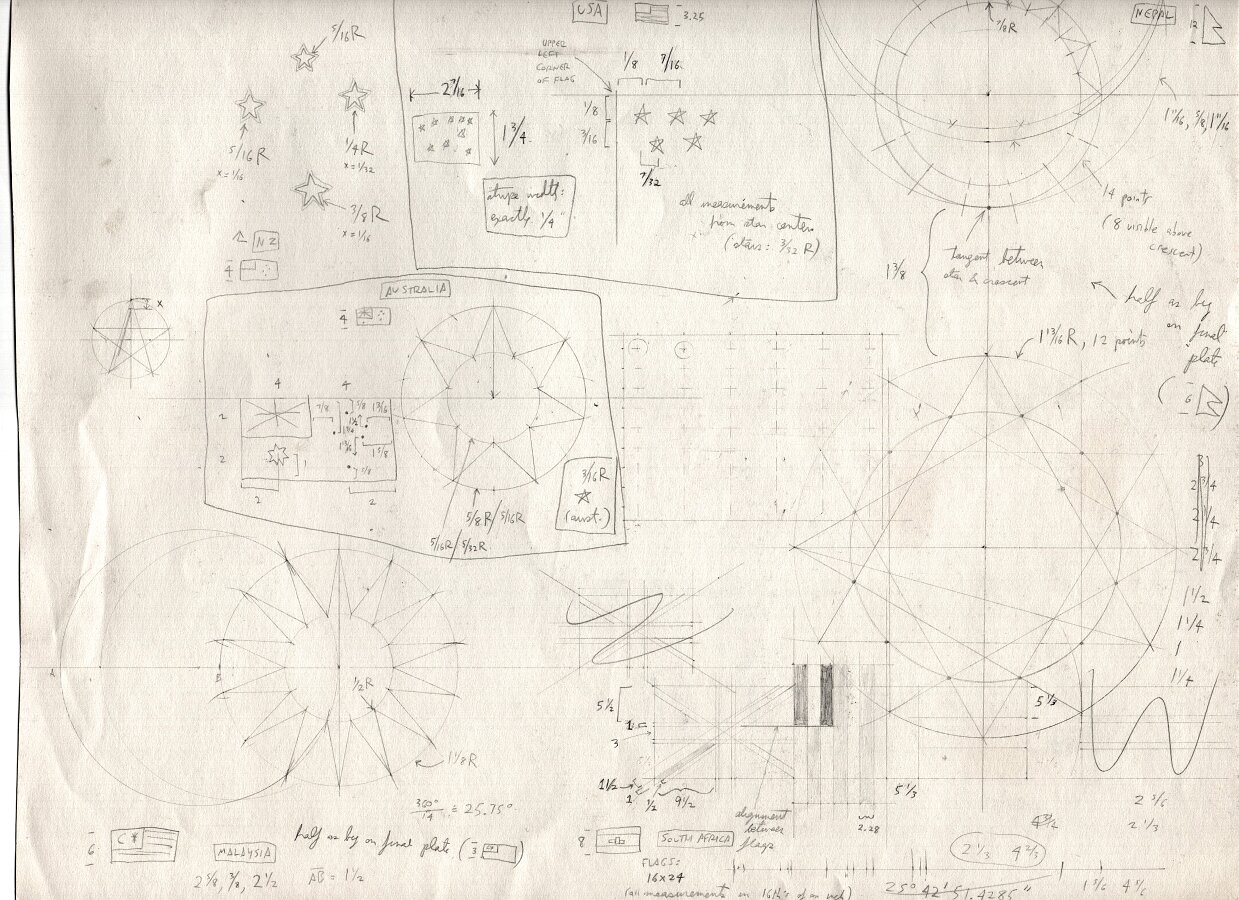 USA
3.25
NEPAL
12
5/16R
7/8R
UPPER
LEFT
CORNER
OF FLAG
1/8 7/16
2 7/16
1/8
3/16
1 3/4
7/32
5/16R
x = 1/16
1/4R
x = 1/32
3/8R
x = 1/16
NZ
4
stripe width:
exactly 1/4"
all measurements
from star centers
(stars: 3/32 R)
1 11/16, 5/8, 1 11/16
14 points
(8 visible above
crescent)
1 3/8
tangent between
star & crescent
half as big
on final
plate
(6
1 13/16 R, 12 points
AUSTRALIA
4
x
4 4
2
2
7/8
5/8
13/16
1 5/8
1
2 2
3/16R
(aust.)
5/8R/5/16R
5/16R/5/32R
2 3/4
2 1/4
2 3/4
1 1/2
1 1/4
1
1 1/4
A
B
1/2R
1 1/8R
360°/14 ≅ 25.75°
5 1/2
1
3
1 1/2
1 1/2 9 1/2
5 1/3
5 1/3
2.28
alignment
between
flags
4 3/2
2 5/6
2 1/3
6
C*
MALAYSIA
half as big on final plate (3
2 5/8, 3/8, 2 1/2
AB = 1 1/2
8
SOUTH AFRICA
FLAGS:
16x24
(all measurements in 16th's of an inch)
2 1/3 4 2/3
25° 42' 51.4285"
1 5/6 4 5/6